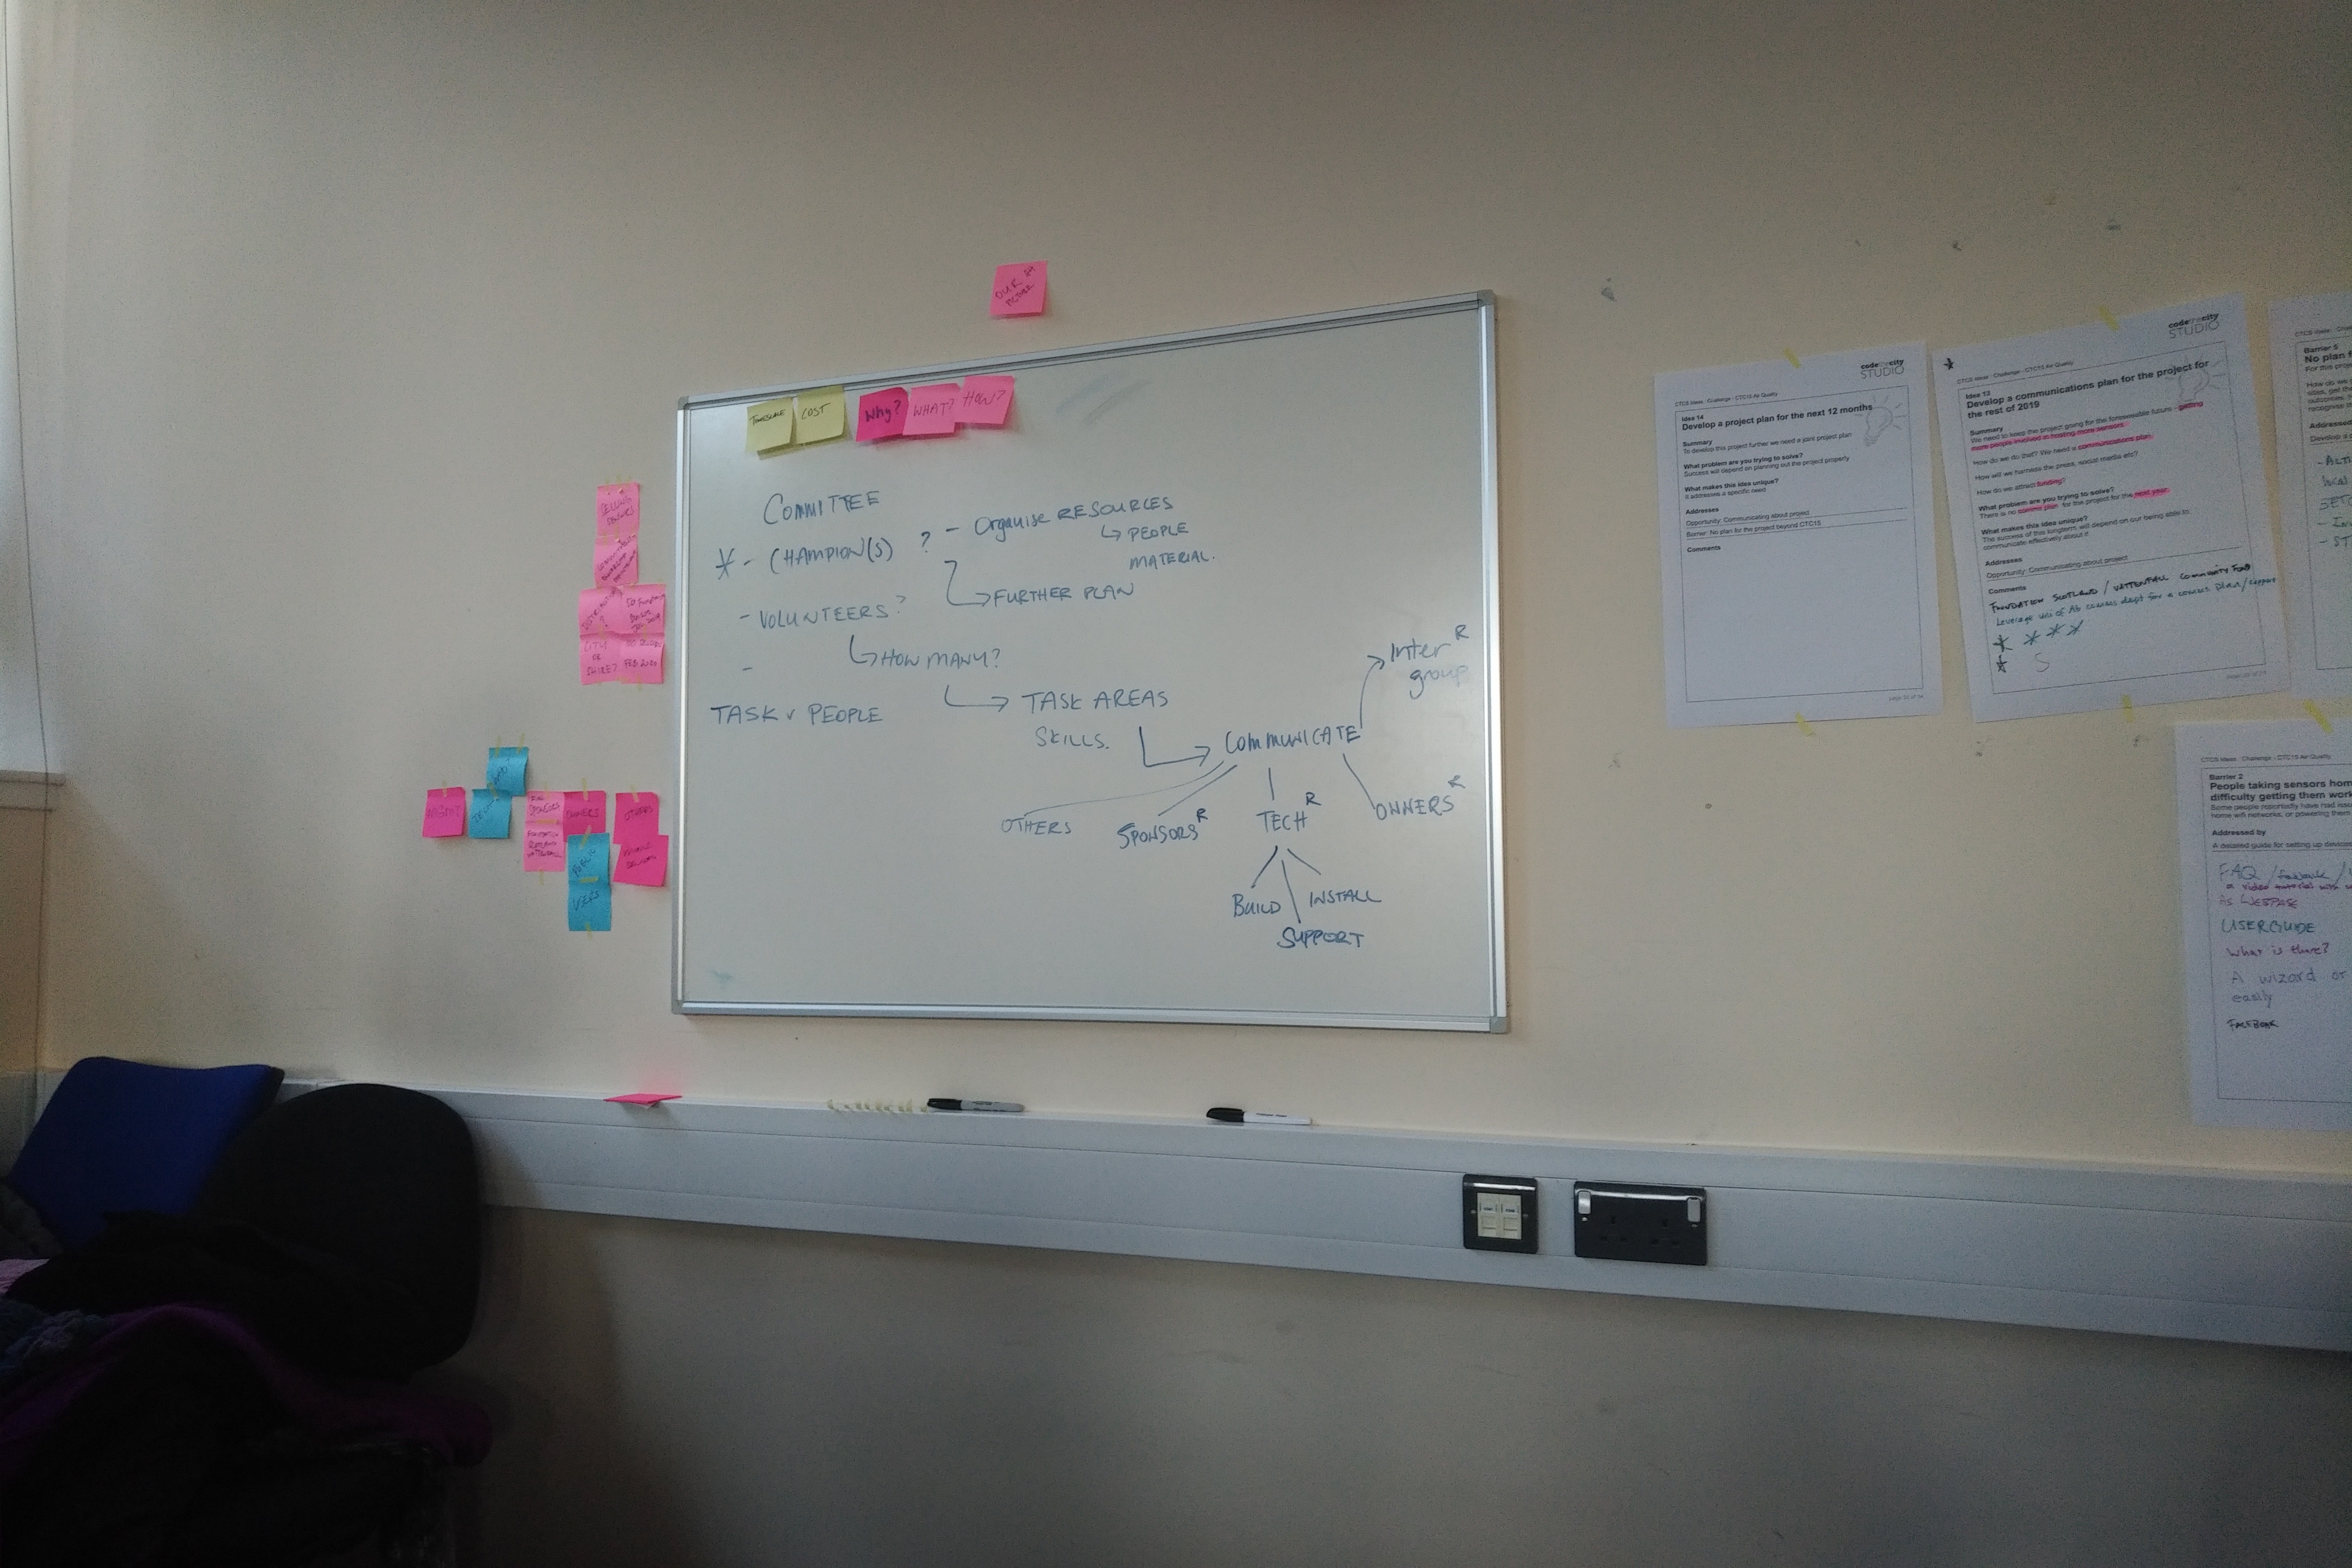 OUR
PICTURE
TIMESCALE
COST
Why?
WHAT?
HOW?
COMMITTEE
* - CHAMPION(S) ? - Organise RESOURCES
↳ PEOPLE
MATERIAL.
↳ FURTHER PLAN
- VOLUNTEERS?
↳ HOW MANY?
-
↳ TASK AREAS
SKILLS.
TASK v PEOPLE
↳ COMMUNICATE
Inter R
group
OTHERS
SPONSORS R
TECH R
OWNERS R
BUILD
INSTALL
SUPPORT
CITY
OR
SHIRE?
FEB 2020
MGMT
OWNERS
OTHERS
PUBLIC
USERS
codethecity
STUDIO
CTCS Ideas : Challenge - CTC15 Air Quality
Idea 14
Develop a project plan for the next 12 months
Summary
To develop this project further we need a joint project plan
What problem are you trying to solve?
Success will depend on planning out the project properly
What makes this idea unique?
It addresses a specific need
Addresses
Opportunity: Communicating about project
Barrier: No plan for the project beyond CTC15
Comments
codethecity
STUDIO
CTCS Ideas : Challenge - CTC15 Air Quality
Idea 13
Develop a communications plan for the project for
the rest of 2019
Summary
We need to keep this project going for the foreseeable future - getting
more people involved in hosting more sensors.
How do we do that? We need a communications plan.
How will we harness the press, social media etc?
How do we attract funding?
What problem are you trying to solve?
There is no comms plan for the project for the next year.
What makes this idea unique?
The success of this longterm will depend on our being able to
communicate effectively about it
Addresses
Opportunity: Communicating about project
Comments
FOUNDATION SCOTLAND / VATTENFALL COMMUNITY FUND
Leverage uni of Ab comms dept for a comms plan/support
* * * *
* S
Barrier 5
No plan f
For this proje
Addressed
Develop a
CTCS Ideas : Challenge - CTC15 Air Quality
Barrier 2
People taking sensors hom
difficulty getting them work
Some people reportedly have
home wifi networks, or powering them
Addressed by
A detailed guide for setting up devices
FAQ / /
a video tutorial with
As WEBPAGE
USERGUIDE
What is there?
A wizard or
easily
FACEBOOK